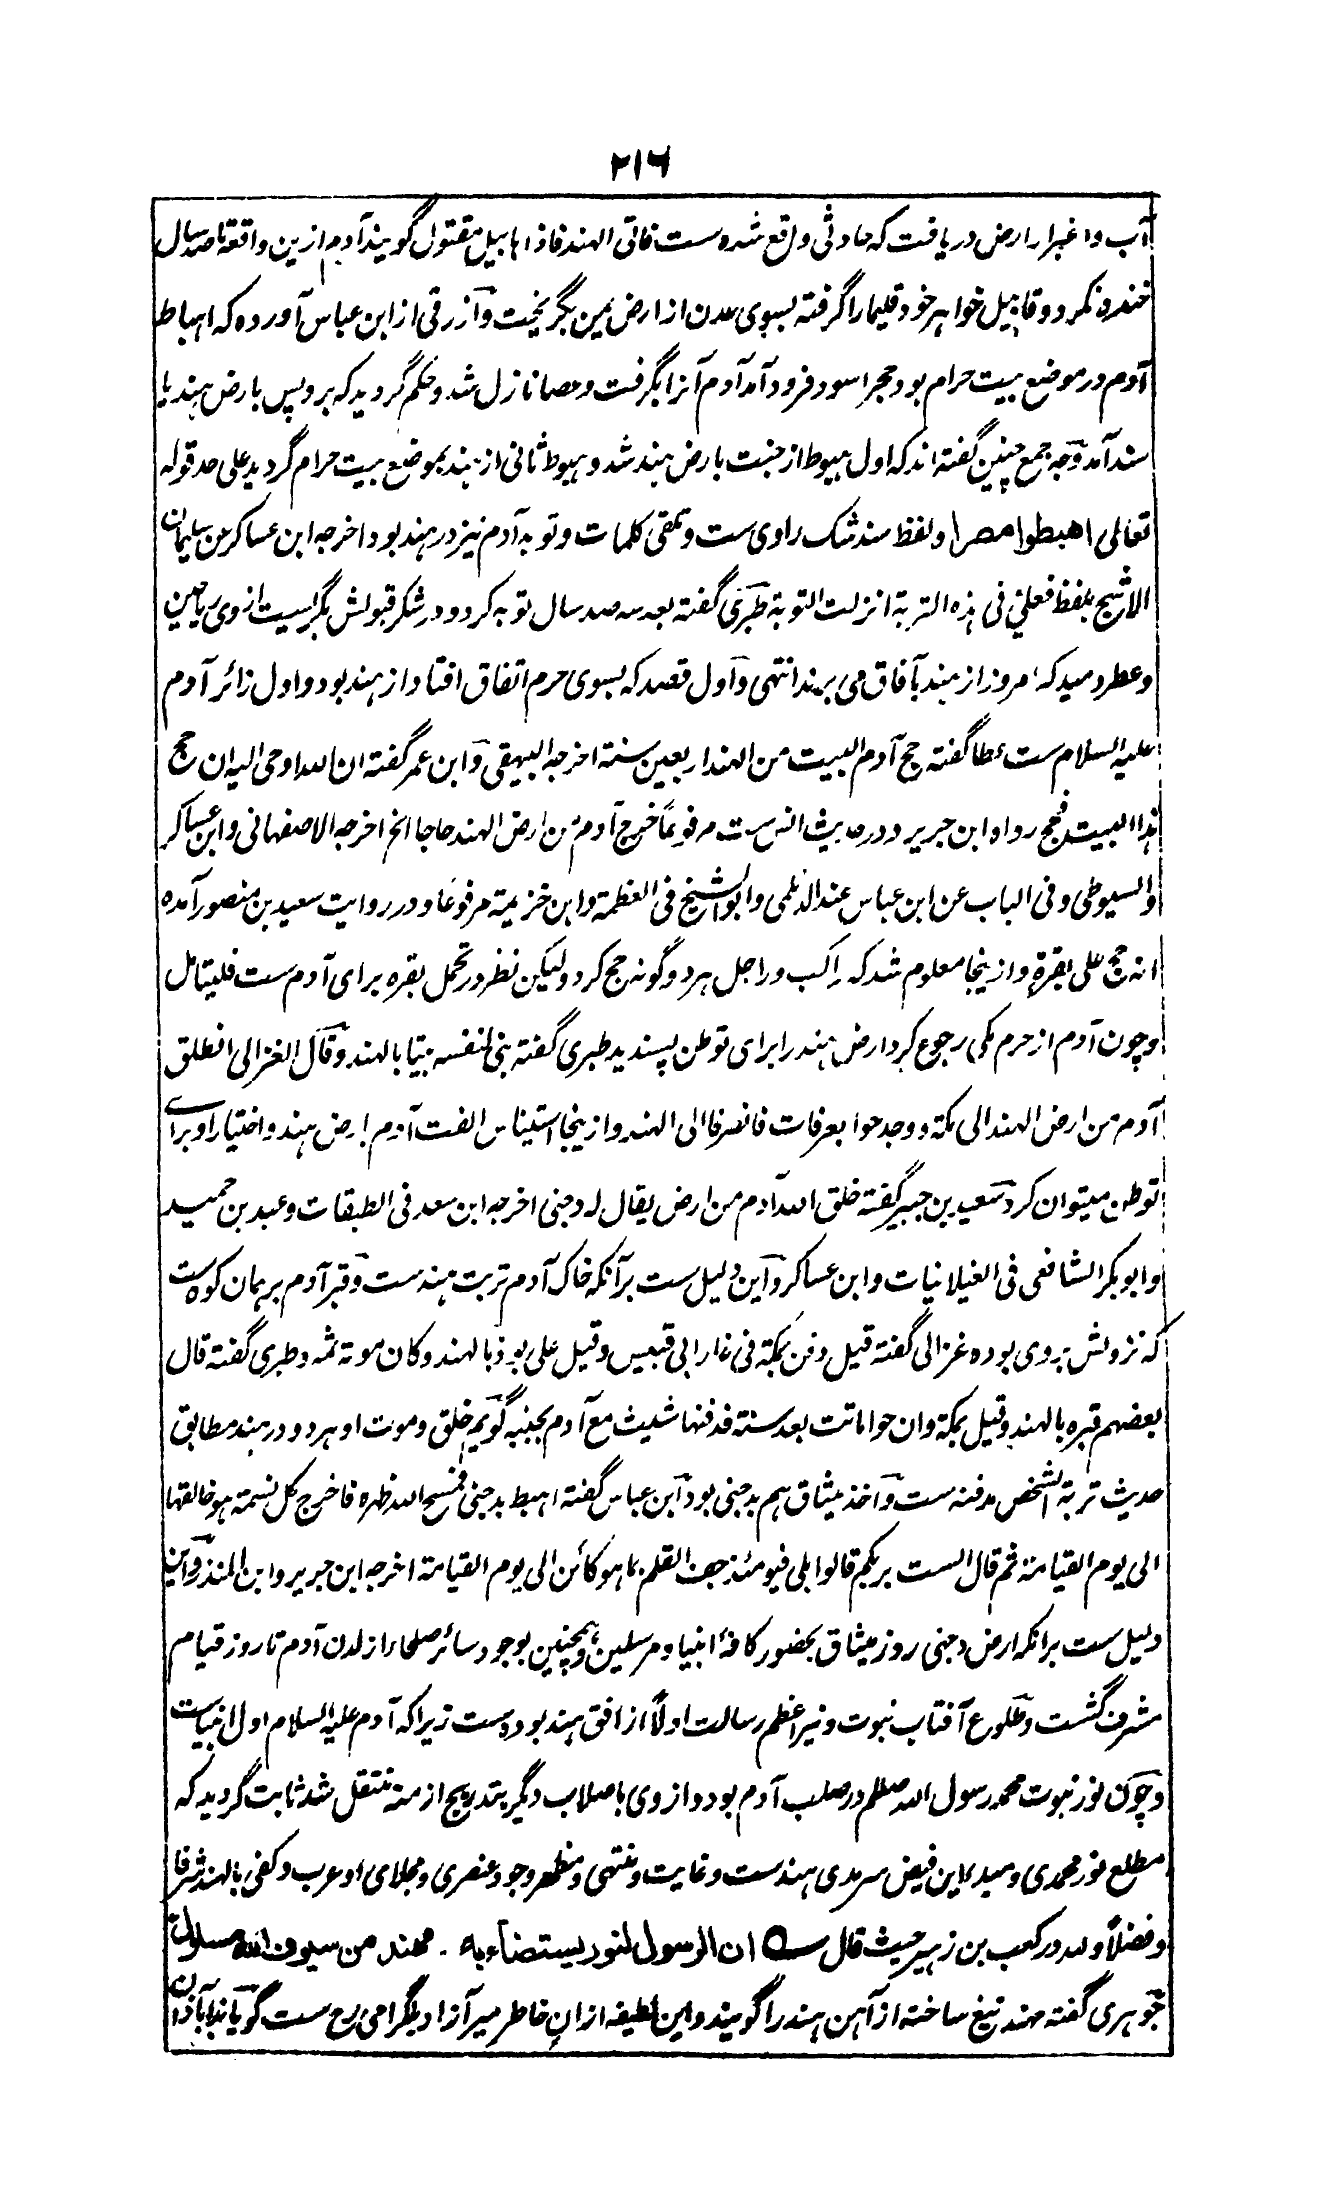 ۲۱۶
آب و اغبرار ارض دریافت که حادثی واقع شده ست فاتی الهند فاذا هابیل مقتول گویند آدم ازین واقعه تا صد سال
خنده نکرد و قابیل خواهر خود قلیما را گرفته بسوی عدن از ارض یمن بگریخت و آزرقی از ابن عباس آورده که اهباط
آدم در موضع بیت حرام بود حجر اسود فرود آمد آدم آنرا بگرفت و عصا نازل شد و حکم گردید که برو پس بارض هند یا
سند آمد و جه جمع چنین گفته اند که اول هبوط از جنت بارض هند شد و هبوط ثانی از هند بموضع بیت حرام گردید علی حد قوله
تعالی اهبطوا مصرا و لفظ سند شک راوی ست و تلقی کلمات و توبه آدم نیز در هند بود اخرجه ابن عساکر من سلیمان
الاشج بلفظ فعلی فی هذه التربة انزلت التوبة طبری گفته بعد سه صد سال توبه کرد و در شکر قبولش بگریست ازوی ریاحین
و عطر دمید که امروز از هند بآفاق می برند انتهی و اول قصد که بسوی حرم اتفاق افتاد از هند بود و اول زائر آدم
علیه السلام ست عطا گفته حج آدم البیت من الهند اربعین سنة اخرجه البیهقی و ابن عمر گفته ان الله اوحی الیه ان حج
هذا البیت فحج رواه ابن جریر و در حدیث انس ست مرفوعاً خرج آدم من ارض الهند حاجا الخ اخرجه الاصفهانی و ابن عساکر
والسیوطی و فی الباب عن ابن عباس عند الدیلمی و ابو الشیخ فی العظمة و ابن خزیمة مرفوعا و در روایت سعید بن منصور آمده
انه حج علی بقرة و ازینجا معلوم شد که راکب و راجل هر دو گونه حج کرد ولیکن نظر در تحمل بقره برای آدم ست فلیتامل
و چون آدم از حرم مکی رجوع کرد ارض هند را برای توطن پسندید طبری گفته بنی لنفسه بیتا بالهند و قال الغزالی انطلق
آدم من ارض الهند الی مکة و وجد حوا بعرفات فانصرفا الی الهند و ازینجا استیناس الفت آدم بارض هند و اختیار او برای
توطن میتوان کرد سعید بن جبیر گفته خلق الله آدم من ارض یقال له دجنی اخرجه ابن سعد فی الطبقات و عبد بن حمید
و ابو بکر الشافعی فی الغیلانیات و ابن عساکر و این دلیل ست بر آنکه خاک آدم تربت هند ست و قبر آدم بر همان کوه ست
که نزولش بروی بوده غزالی گفته قیل دفن بمکة فی غار ابی قبیس و قیل علی بوذ بالهند و کان موته ثمه و طبری گفته قال
بعضهم قبره بالهند و قیل بمکة و ان حوا ماتت بعد سنة فدفنها شیث مع آدم بجنبه گویم خلق و موت او هر دو در هند مطابق
حدیث تربة الشخص مدفنه ست و آخذ میثاق هم بدجنی بود ابن عباس گفته اهبط بدجنی فمسح الله ظهره فاخرج کل نسمة هو خالقها
الی یوم القیامة ثم قال الست بربکم قالوا بلی فیومئذ جف القلم بما هو کائن الی یوم القیامة اخرجه ابن جریر و ابن المنذر و این
دلیل ست برانکه ارض دجنی روز میثاق بحضور کافهٔ انبیا و مرسلین و همچنین بوجود سائر صلحا از لدن آدم تا روز قیام
مشرف گشت و طلوع آفتاب نبوت و نیر اعظم رسالت اولاً از افق هند بوده ست زیرا که آدم علیه السلام اول انبیاست
و چون نور نبوت محمد رسول الله صللم در صلب آدم بود و ازوی باصلاب دیگر بتدریج ازمنه منتقل شد ثابت گردید که
مطلع نور محمدی و مبدء این فیض سرمدی هند ست و غایت و منتهی و مظهر وجود عنصری و مجلای او عرب و کفی بالهند شرفا
و فضلاً و لله در کعب بن زهیر حیث قال ؎ ان الرسول لنور یستضاء به ۰ مهند من سیوف الله مسلول
جوهری گفته مهند تیغ ساخته از آهن هند را گویند و این لطیفه ازان خاطر میر آزاد بلگرامی رح ست گویا